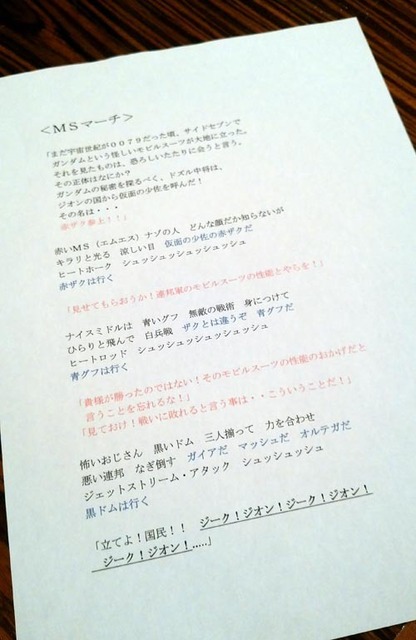 ＜ＭＳマーチ＞
「まだ宇宙世紀が００７９だった頃、サイドセブンで
ガンダムという怪しいモビルスーツが大地に立った。
それを見たものは、恐ろしいたたりに会うと言う。
その正体はなにか？
ガンダムの秘密を探るべく、ドズル中将は、
ジオンの国から仮面の少佐を呼んだ！
その名は・・・
赤ザク参上！！」
赤いＭＳ（エムエス）ナゾの人　どんな顔だか知らないが
キラリと光る　涼しい目　仮面の少佐の赤ザクだ
ヒートホーク　シュッシュッシュッシュッシュ
赤ザクは行く
「見せてもらおうか！連邦軍のモビルスーツの性能とやらを！」
ナイスミドルは　青いグフ　無敵の戦術　身につけて
ひらりと飛んで　白兵戦　ザクとは違うぞ　青グフだ
ヒートロッド　シュッシュッシュッシュッシュ
青グフは行く
「貴様が勝ったのではない！そのモビルスーツの性能のおかげだと
言うことを忘れるな！」
「見ておけ！戦いに敗れると言う事は・・こういうことだ！」
怖いおじさん　黒いドム　三人揃って　力を合わせ
悪い連邦　なぎ倒す　ガイアだ　マッシュだ　オルテガだ
ジェットストリーム・アタック　シュッシュッシュ
黒ドムは行く
「立てよ！国民！！　ジーク！ジオン！ジーク！ジオン！
ジーク！ジオン！.....」